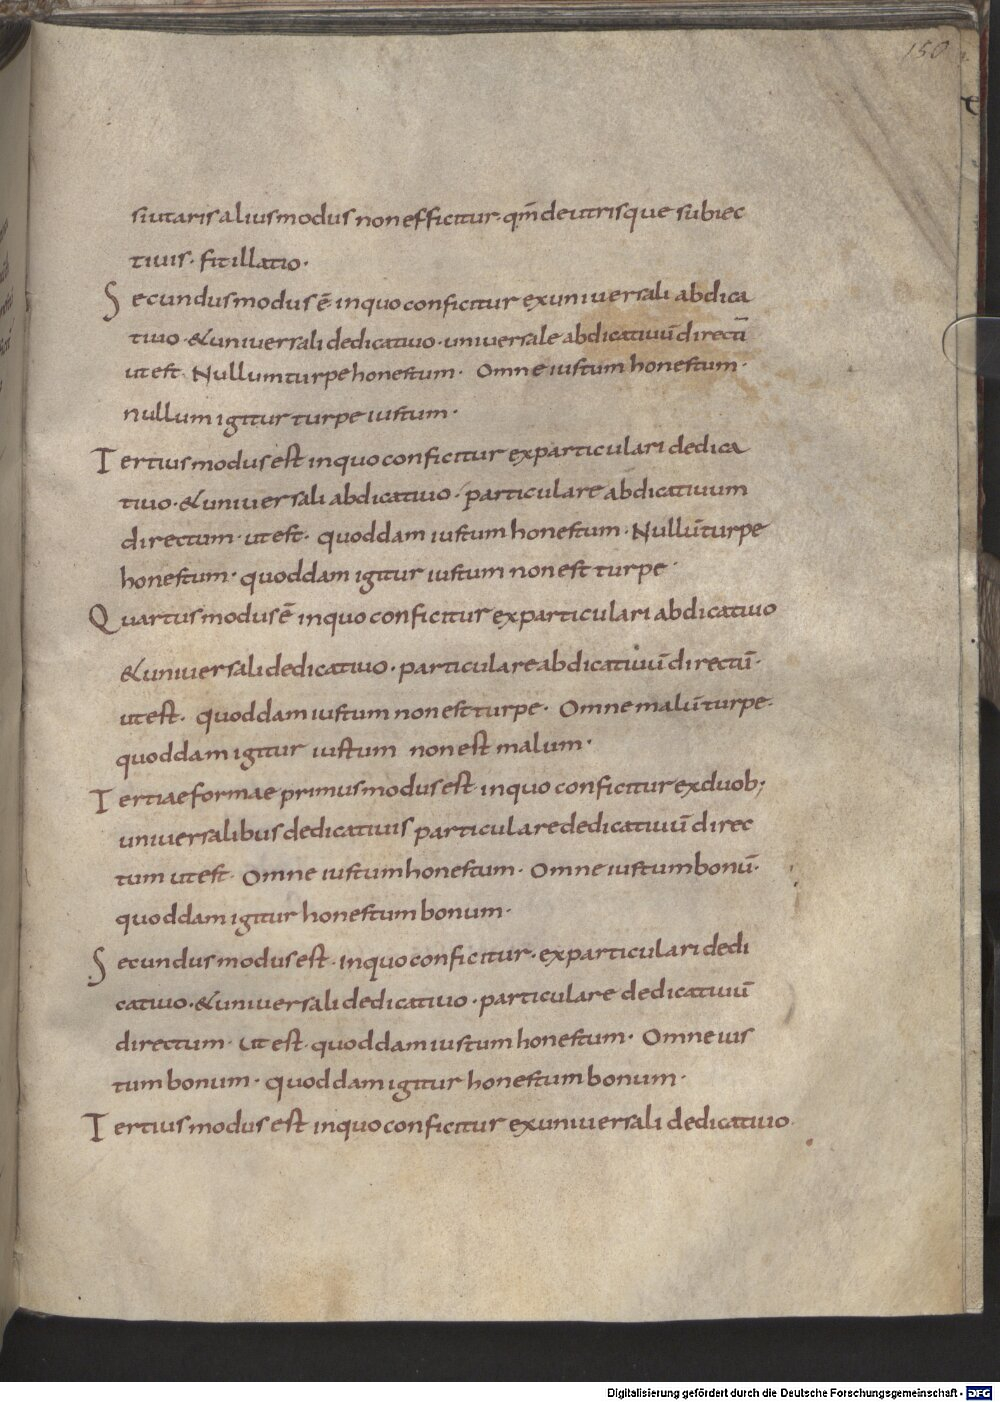 150
siutaris alius modus non efficitur · qm̄ de utrisque subiec
tiuis · fit illatio ·
Secundus modus ē · in quo conficitur ex uniuersali abdica
tiuo · & uniuersali dedicatiuo · uniuersale abdicatiuū directū
ut est · Nullum turpe honestum · Omne iustum honestum ·
nullum igitur turpe iustum ·
Tertius modus est in quo conficitur ex particulari dedica
tiuo · & uniuersali abdicatiuo · particulare abdicatiuum
directum · ut est · quoddam iustum honestum · Nullū turpe
honestum · quoddam igitur iustum non est turpe ·
Quartus modus ē in quo conficitur ex particulari abdicatiuo
& uniuersali dedicatiuo · particulare abdicatiuū directū ·
ut est · quoddam iustum non est turpe · Omne malū turpe ·
quoddam igitur iustum non est malum ·
Tertiae formae primus modus est · in quo conficitur ex duob;
uniuersalibus dedicatiuis particulare dedicatiuū direc
tum ut est · Omne iustum honestum · Omne iustum bonū ·
quoddam igitur honestum bonum ·
Secundus modus est · in quo conficitur · ex particulari dedi
catiuo · & uniuersali dedicatiuo · particulare dedicatiuū
directum · ut est · quoddam iustum honestum · Omne ius
tum bonum · quoddam igitur honestum bonum ·
Tertius modus est in quo conficitur ex uniuersali dedicatiuo
Digitalisierung gefördert durch die Deutsche Forschungsgemeinschaft - DFG